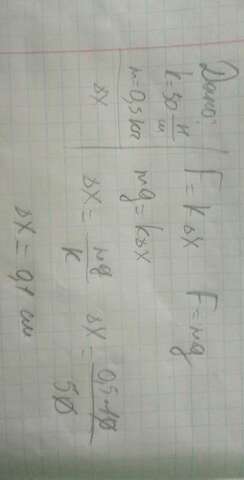 Дано:
k = 50 н/м
m = 0,5 кг
ΔX
F = kΔX F = mg
mg = kΔX
ΔX = mg/k ΔX = 0,5·10/50
ΔX = 0,1 см